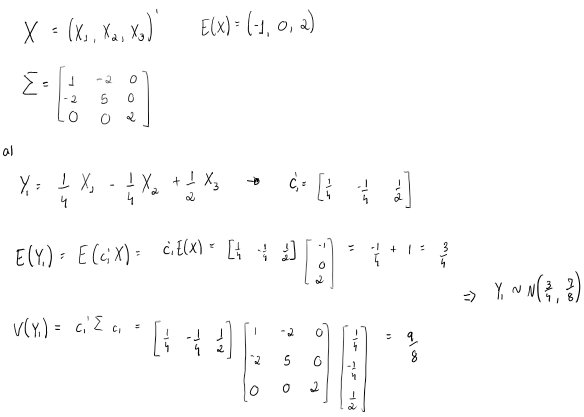 X = (X₁, X₂, X₃)' E(X) = (-1, 0, 2)
Σ = [1 -2 0
-2 5 0
0 0 2]
a)
Y₁ = 1/4 X₁ - 1/4 X₂ + 1/2 X₃ → C₁' = [1/4 -1/4 1/2]
E(Y₁) = E(c₁'X) = c₁'E(X) = [1/4 -1/4 1/2] [-1 0 2] = -1/4 + 1 = 3/4
=> Y₁ ~ N(3/4, 9/8)
V(Y₁) = c₁' Σ c₁ = [1/4 -1/4 1/2] [1 -2 0
-2 5 0
0 0 2] [1/4 -1/4 1/2] = 9/8